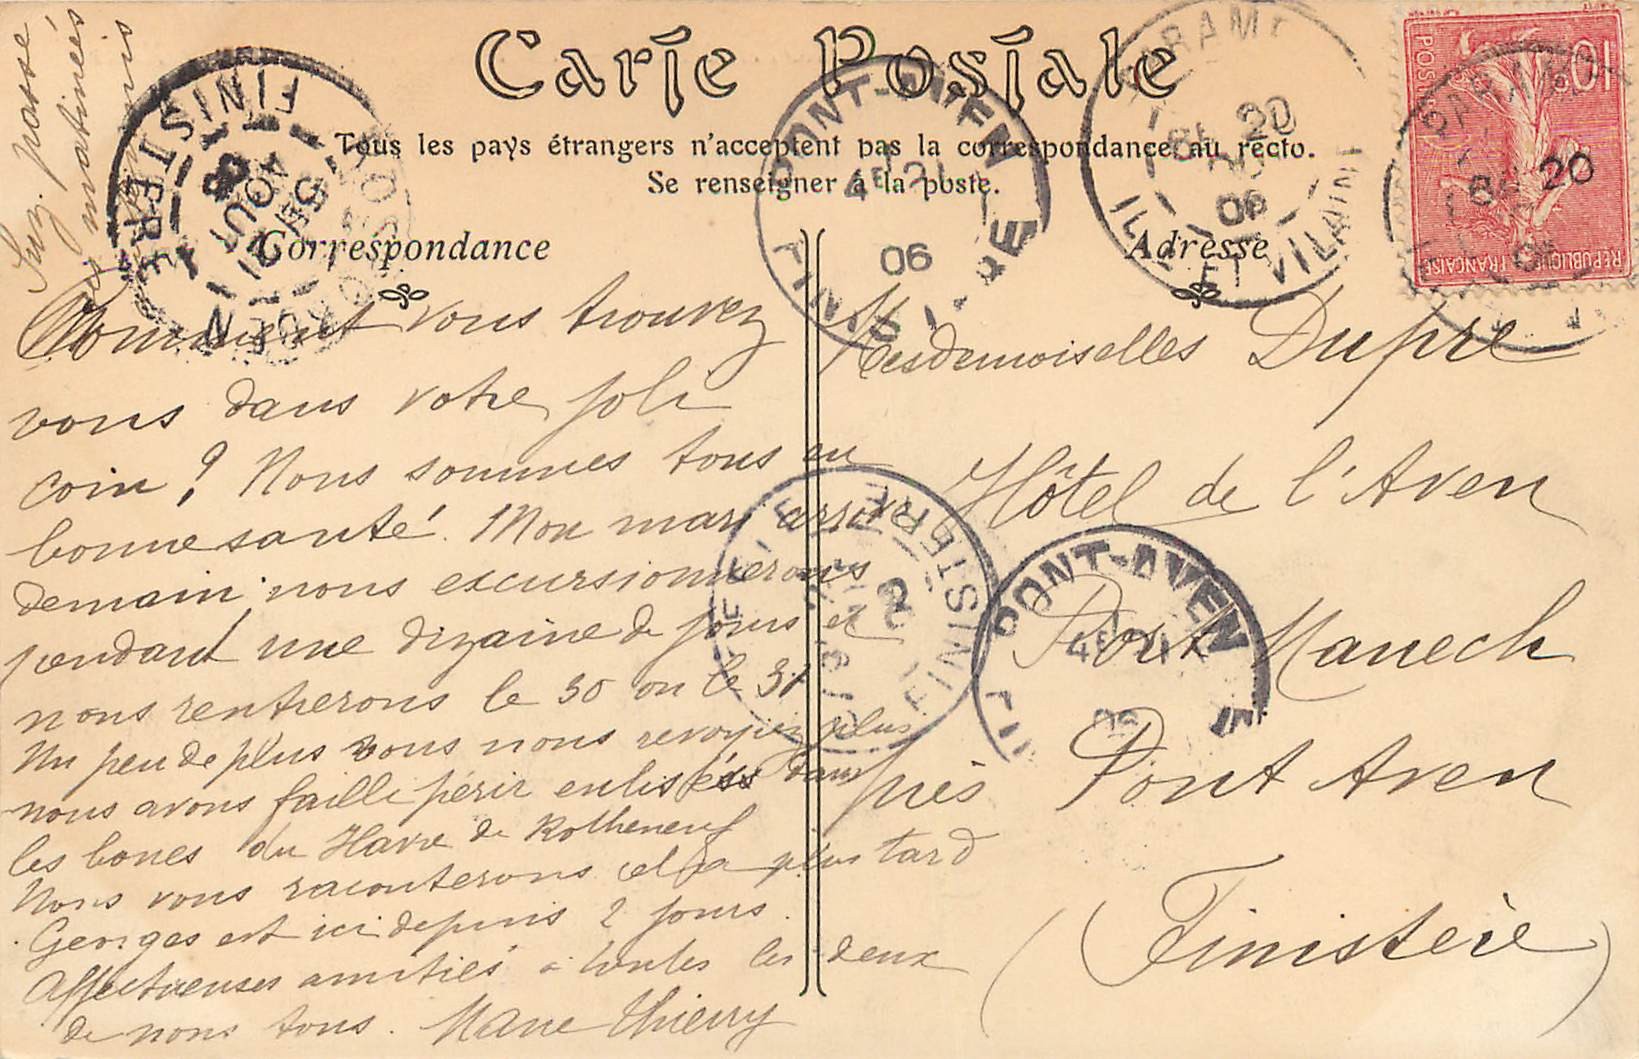 Carte Postale
Tous les pays étrangers n'acceptent pas la correspondance au recto.
Se renseigner à la poste.
Correspondance
Adresse
Suz. passe
matinées
Comment vous trouvez
vous dans votre joli
coin ? Nous sommes tous en
bonne santé. Mon mari arrive
demain, nous excursionnerons
pendant une dizaine de jours et
nous rentrerons le 30 ou le 31
Un peu de plus vous nous revoyiez plus
nous avons failli périr enlisées dans
les boues du Havre de Rotheneuf
Nous vous raconterons cela plus tard
Georges est ici depuis 2 jours.
Affectueuses amitiés à toutes les deux
de nous tous. Marie Thierry
Mesdemoiselles Dupré
Hôtel de l'Aven
Port Manech
près Pont Aven
(Finistère)
FINISTERE
ROSPORDEN
5E
21
AOUT
06
PONT-AVEN
4E 21
06
FINISTERE
PARAME
8E 20
06
ILLE ET VILAINE
10c
POSTES
REPUBLIQUE FRANÇAISE
PARAME
8E 20
FINISTERE
PONT-AVEN
4E 21
06